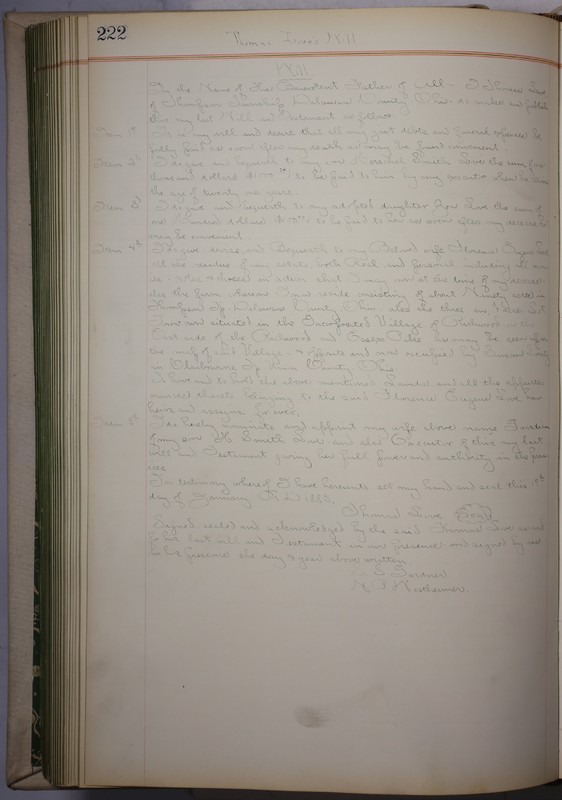 222
Thomas Love's Will
Will.
In the Name of the Benevolent Father of All - I Thomas Love
of Thompson Township Delaware County Ohio do make and publish
this my last Will and Testament as follows
Item 1st It is my will and desire that all my just debts and funeral expenses be
fully paid as soon after my death as may be found convenient
Item 2d I give and bequeath to my son Smith Love the sum of one
thousand dollars $1000 to be paid to him by my executor when he
the age of twenty one years.
Item 3d I give and bequeath to my adopted daughter Love the sum of
one hundred dollars to be paid to her as soon after my decease as
may be convenient
Item 4th I give, devise, and Bequeath to my Beloved wife Florence Eugene Love
all the residue of my estate both Real and personal including
notes & choses in action that I may own at the time of my decease
also the farm whereon I now reside consisting of about Ninety acres in
Thompson Tp. Delaware County Ohio also the three
now situated in the Incorporated Village of Richwood on the
East side of the Richwood and Essex Pike as may be seen upon
the map of said Village - & opposite and now occupied by
in Claibourne Tp Union County Ohio.
To have and to hold the above mentioned Lands and all the appurte-
nances thereto belonging to the said Florence Eugene Love her
heirs and assigns forever.
Item 5th I do hereby nominate and appoint my wife above name Guardian
of my son H. Smith Love and also Executor of this my last
Will and Testament giving her full power and authority in the prem-
ises
In testimony whereof I have hereunto set my hand and seal this
day of January A.D. 1883.
Thomas Love (Seal)
Signed sealed and acknowledged by the said Thomas Love as and
to be his last will and Testament in our presence and signed by us
in his presence the day & year above written
Gardner